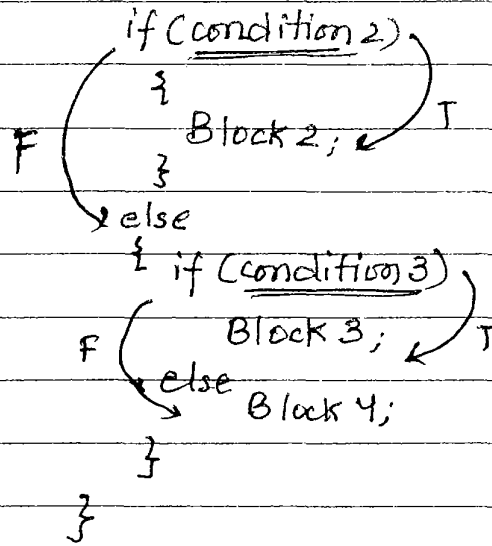 if (condition 2)
{
T
Block 2;
F
}
else
{ if (condition 3)
Block 3;
T
F
else
Block 4;
}
}